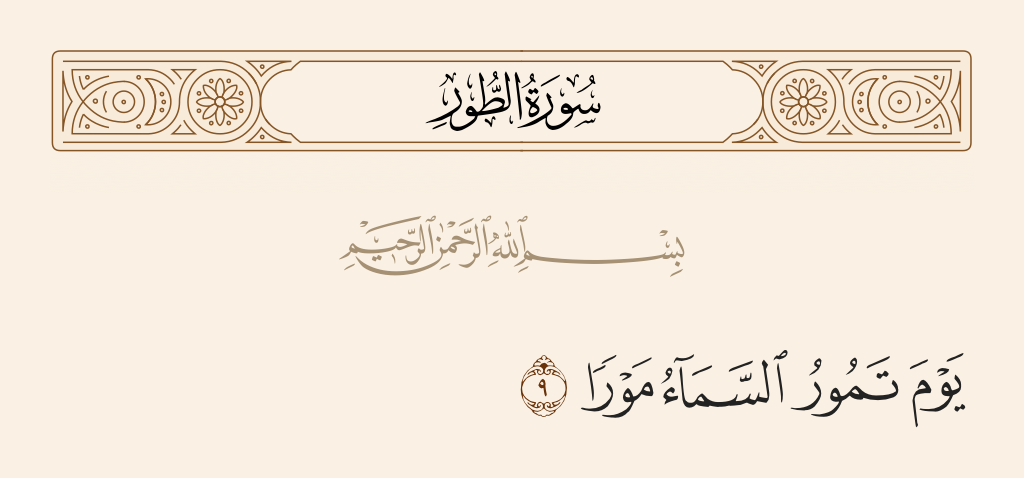 سُورَةُ الطُّورِ
بِسْمِ ٱللَّهِ ٱلرَّحْمَٰنِ ٱلرَّحِيمِ
يَوْمَ تَمُورُ ٱلسَّمَآءُ مَوْرًا ٩